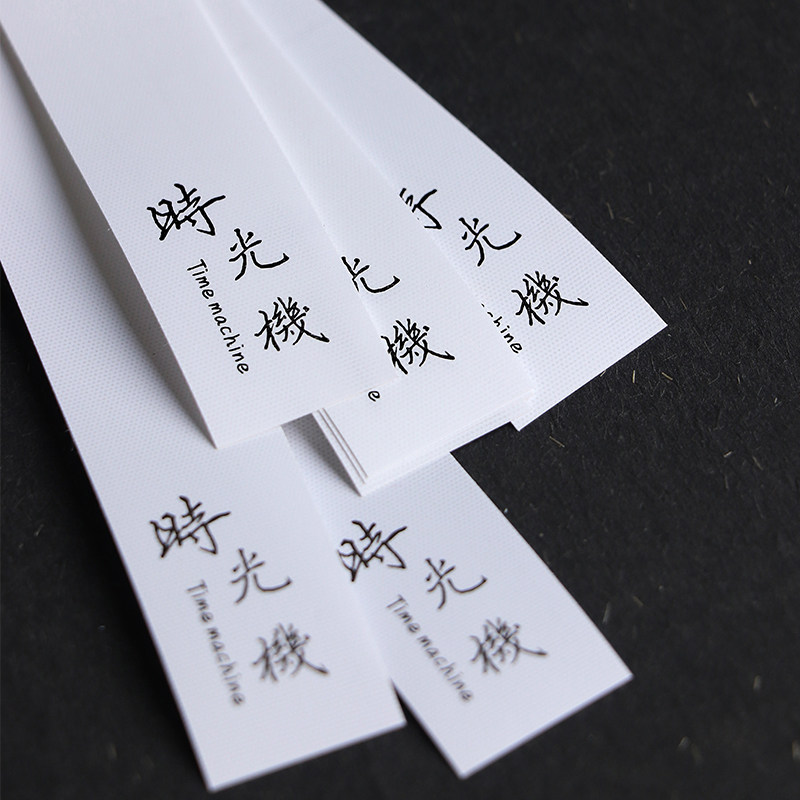 時光機
Time machine
光機
時光機
時光機
Time machine
時光機
Time machine